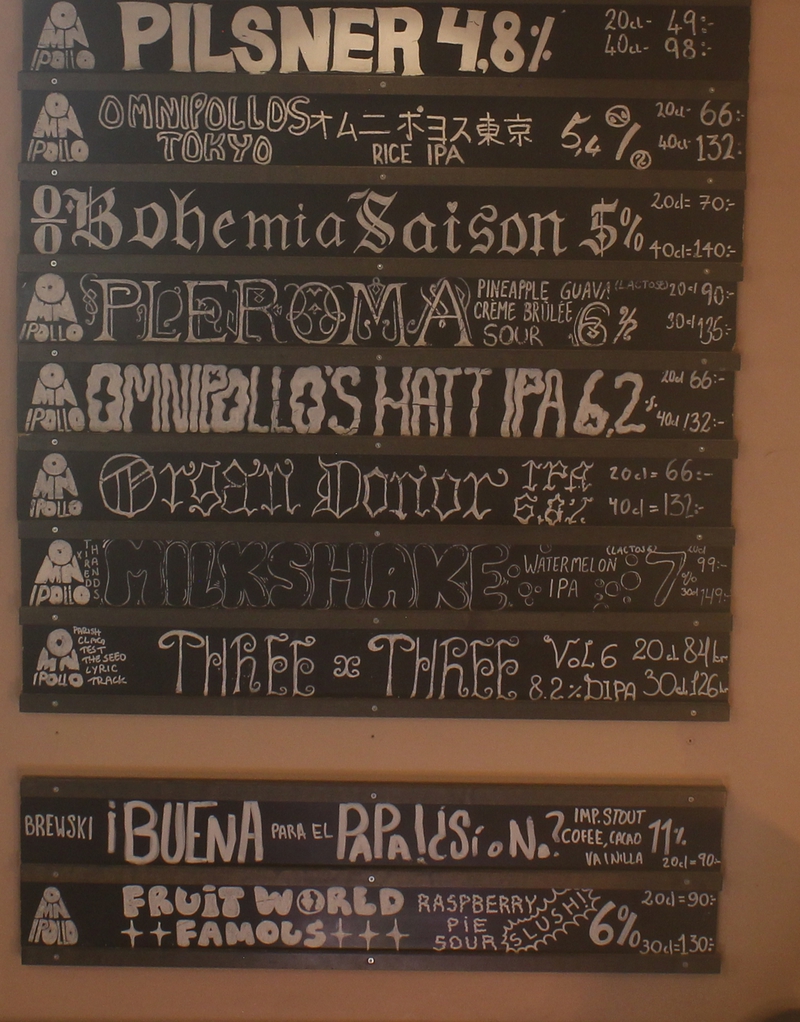 OMNIPOLLO PILSNER 4,8% 20cl- 49:-
40cl- 98:-
OMNIPOLLO OMNIPOLLOS TOKYO オムニポヨス東京 RICE IPA 5,4% 20cl- 66:-
40cl- 132:-
O/O Bohemia Saison 5% 20cl= 70:-
40cl=140:-
OMNIPOLLO PLEROMA PINEAPPLE GUAVA (LACTOSE) 20cl 90:-
CRÈME BRÛLÉE
SOUR 6% 30cl 135:-
OMNIPOLLO OMNIPOLLO'S HATT IPA 6,2% 20cl 66:-
40cl 132:-
OMNIPOLLO Organ Donor IPA 20cl= 66:-
6,8% 40cl = 132:-
OMNIPOLLO MILKSHAKE WATERMELON (LACTOSE)
IPA 7% 20cl 99:-
30cl 149:-
OMNIPOLLO PARISH
CLAG
TEST
THE SEED
LYRIC
TRACK
THREE x THREE VOL 6 20cl 84kr
8.2% DIPA 30cl 126kr
BREWSKI ¡BUENA PARA EL PAPA!¿SioNo? IMP. STOUT
COFEE, CACAO
VAINILLA 11% 20cl=90:-
OMNIPOLLO FRUIT WORLD
FAMOUS
RASPBERRY
PIE
SOUR SLUSH! 6% 20cl=90:-
30cl=130:-